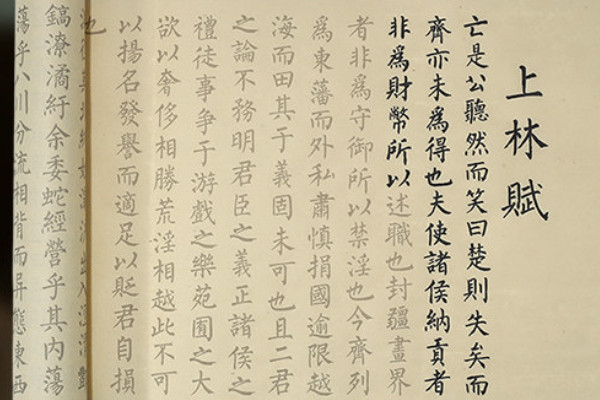 上林賦
亡是公聽然而笑曰楚則失矣而
齊亦未爲得也夫使諸侯納貢者
非爲財幣所以述職也封疆畫界
者非爲守御所以禁淫也今齊列
爲東藩而外私肅慎捐國逾限越
海而田其于義固未可也且二君
之論不務明君臣之義正諸侯之
禮徒事爭于游戲之樂苑囿之大
欲以奢侈相勝荒淫相越此不可
以揚名發譽而適足以貶君自損
也
鎬潦潏紆余委蛇經營乎其内蕩
蕩乎八川分流相背而异態東西